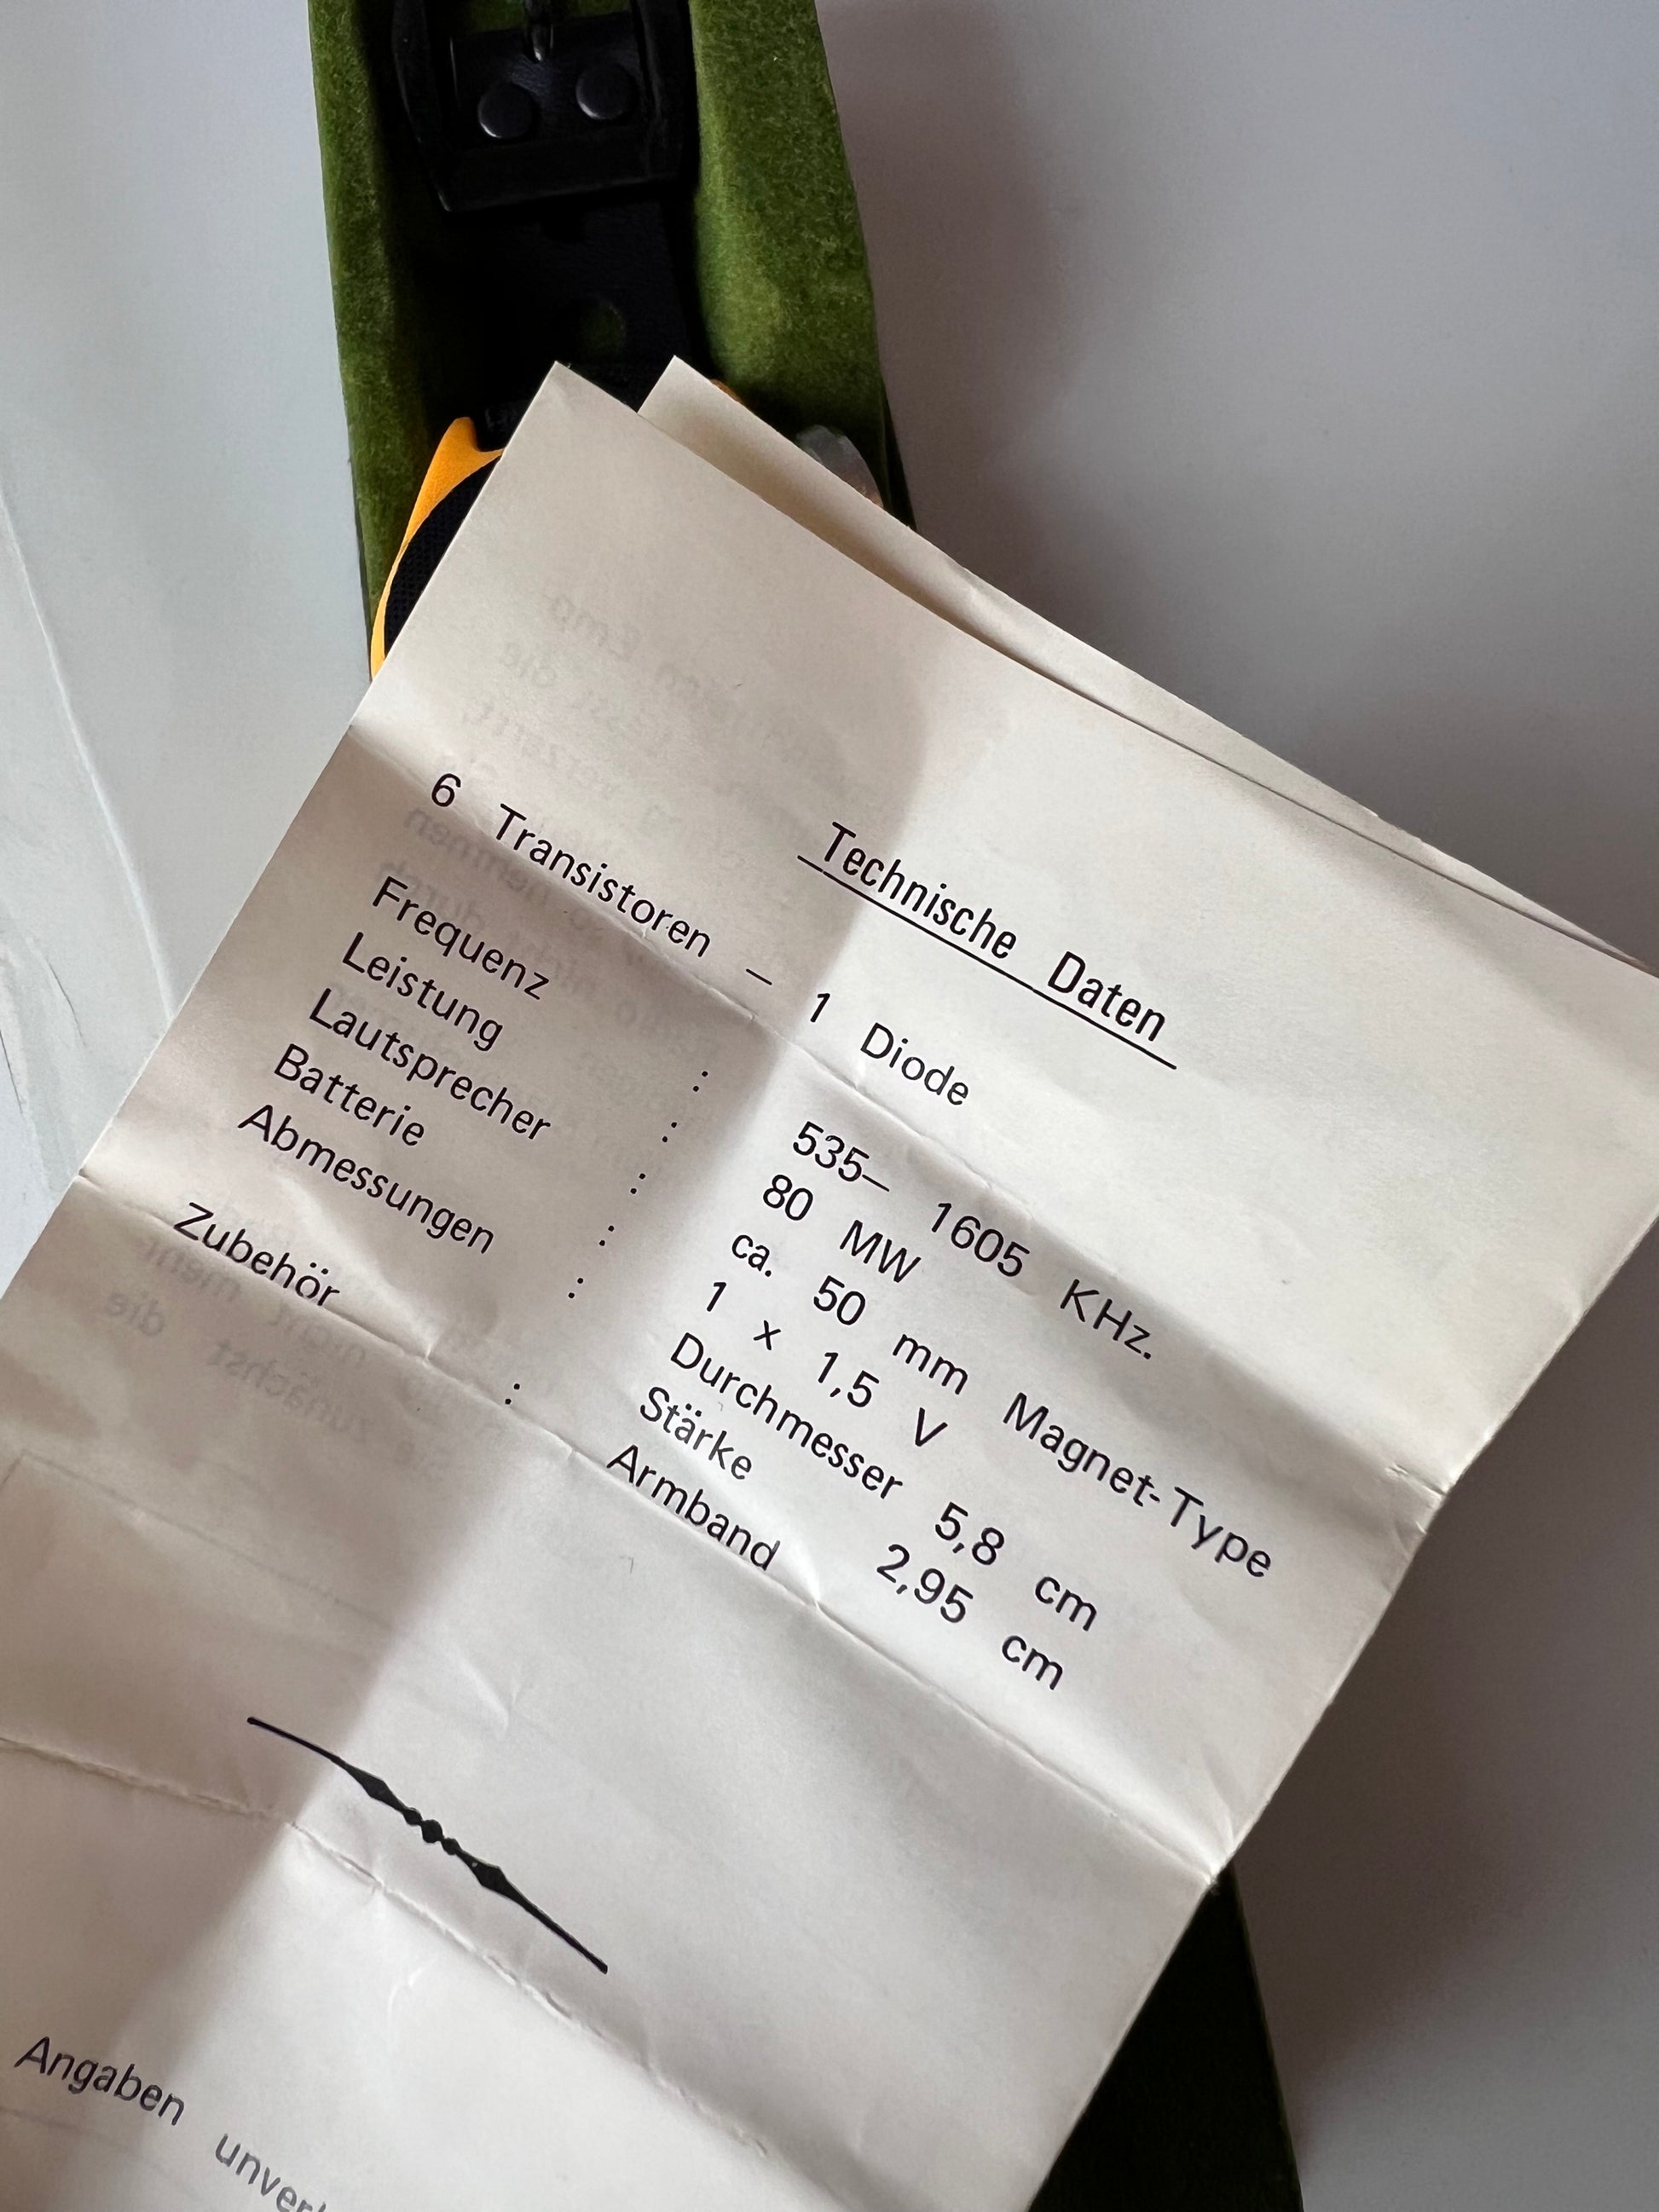 Technische Daten
6 Transistoren – 1 Diode
Frequenz : 535– 1605 KHz.
Leistung : 80 MW
Lautsprecher : ca. 50 mm Magnet-Type
Batterie : 1 x 1,5 V
Abmessungen : Durchmesser 5,8 cm
Stärke 2,95 cm
Zubehör : Armband
Angaben